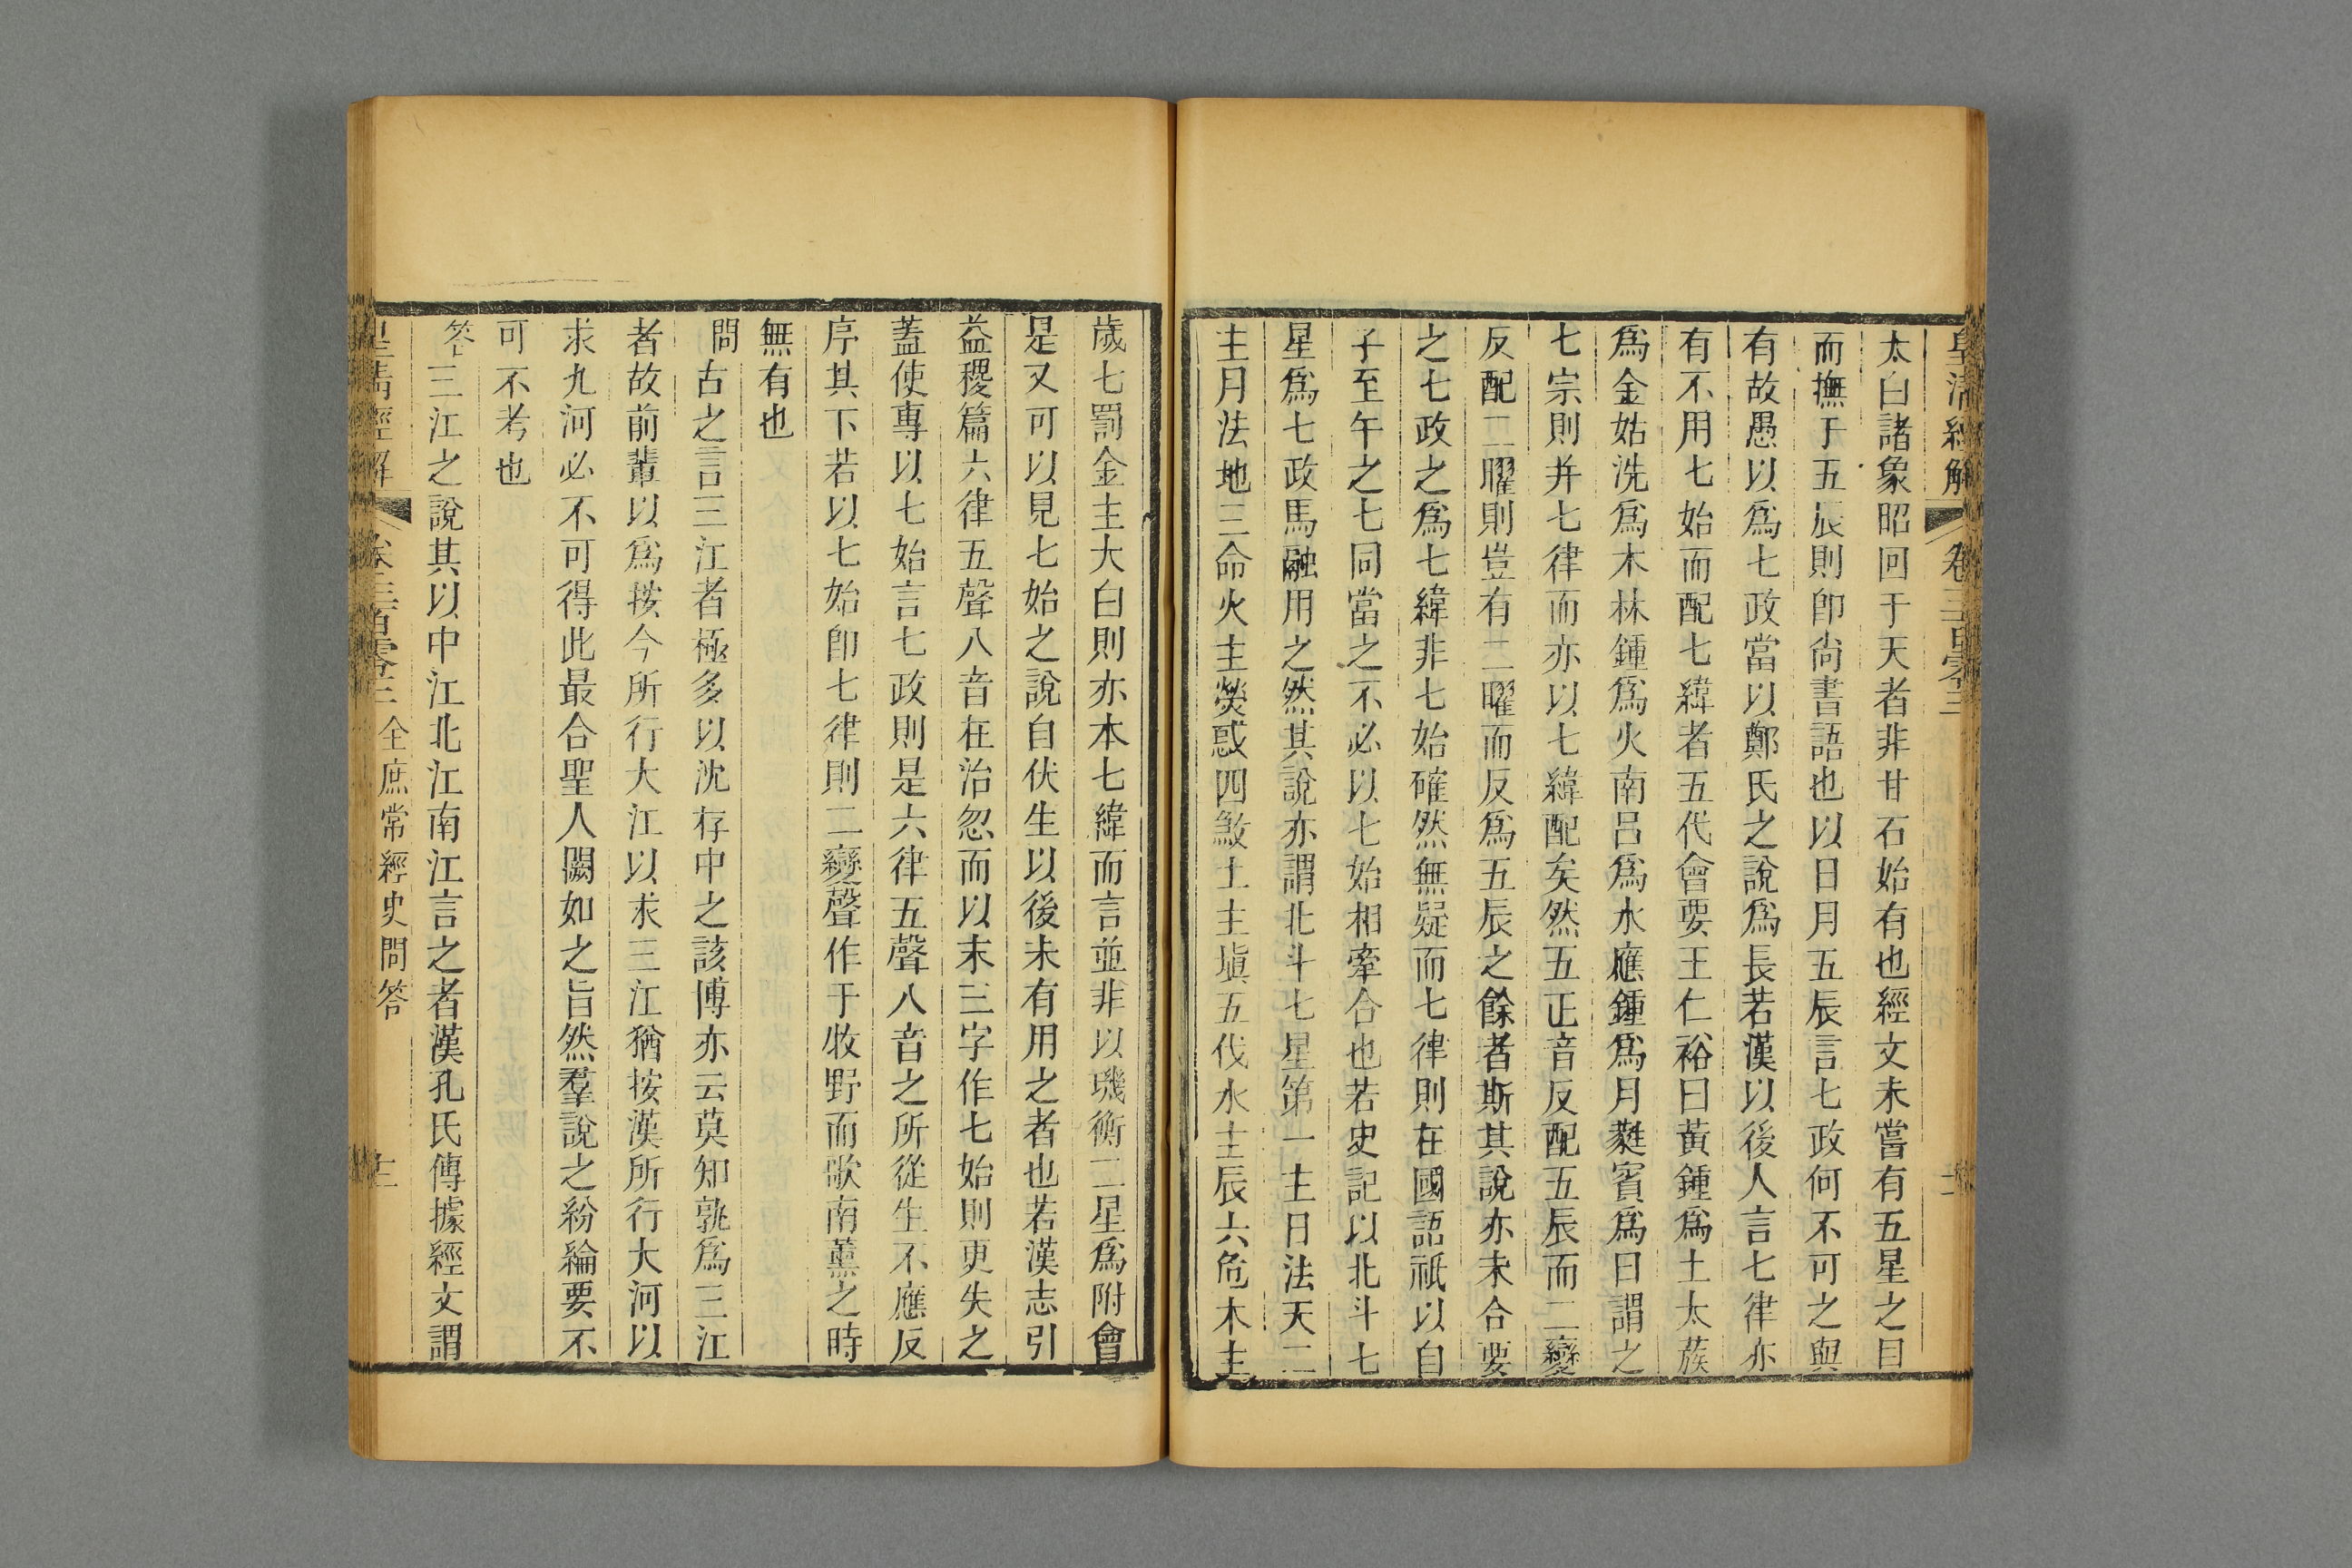 皇清經解 卷三百零三 二
太白諸象昭回于天者非甘石始有也經文未嘗有五星之目
而撫于五辰則卽尙書語也以日月五辰言七政何不可之與
有故愚以爲七政當以鄭氏之說爲長若漢以後人言七律亦
有不用七始而配七緯者五代會要王仁裕曰黃鍾爲土太蔟
爲金姑洗爲木林鍾爲火南呂爲水應鍾爲月蕤賓爲日謂之
七宗則幷七律而亦以七緯配矣然五正音反配五辰而二變
反配二曜則豈有二曜而反爲五辰之餘者斯其說亦未合要
之七政之爲七緯非七始確然無疑而七律則在國語祇以自
子至午之七同當之不必以七始相牽合也若史記以北斗七
星爲七政馬融用之然其說亦謂北斗七星第一主日法天二
主月法地三命火主熒惑四煞土主塡五伐水主辰六危木主
歲七罰金主大白則亦本七緯而言並非以璣衡二星爲附會
是又可以見七始之說自伏生以後未有用之者也若漢志引
益稷篇六律五聲八音在治忽而以末三字作七始則更失之
蓋使專以七始言七政則是六律五聲八音之所從生不應反
序其下若以七始卽七律則二變聲作于收野而歌南薰之時
無有也
問古之言三江者極多以沈存中之該博亦云莫知孰爲三江
者故前輩以爲按今所行大江以求三江猶按漢所行大河以
求九河必不可得此最合聖人闕如之旨然羣說之紛綸要不
可不考也
答三江之說其以中江北江南江言之者漢孔氏傳據經文謂
皇淸經解 卷三百零三 全庶常經史問答